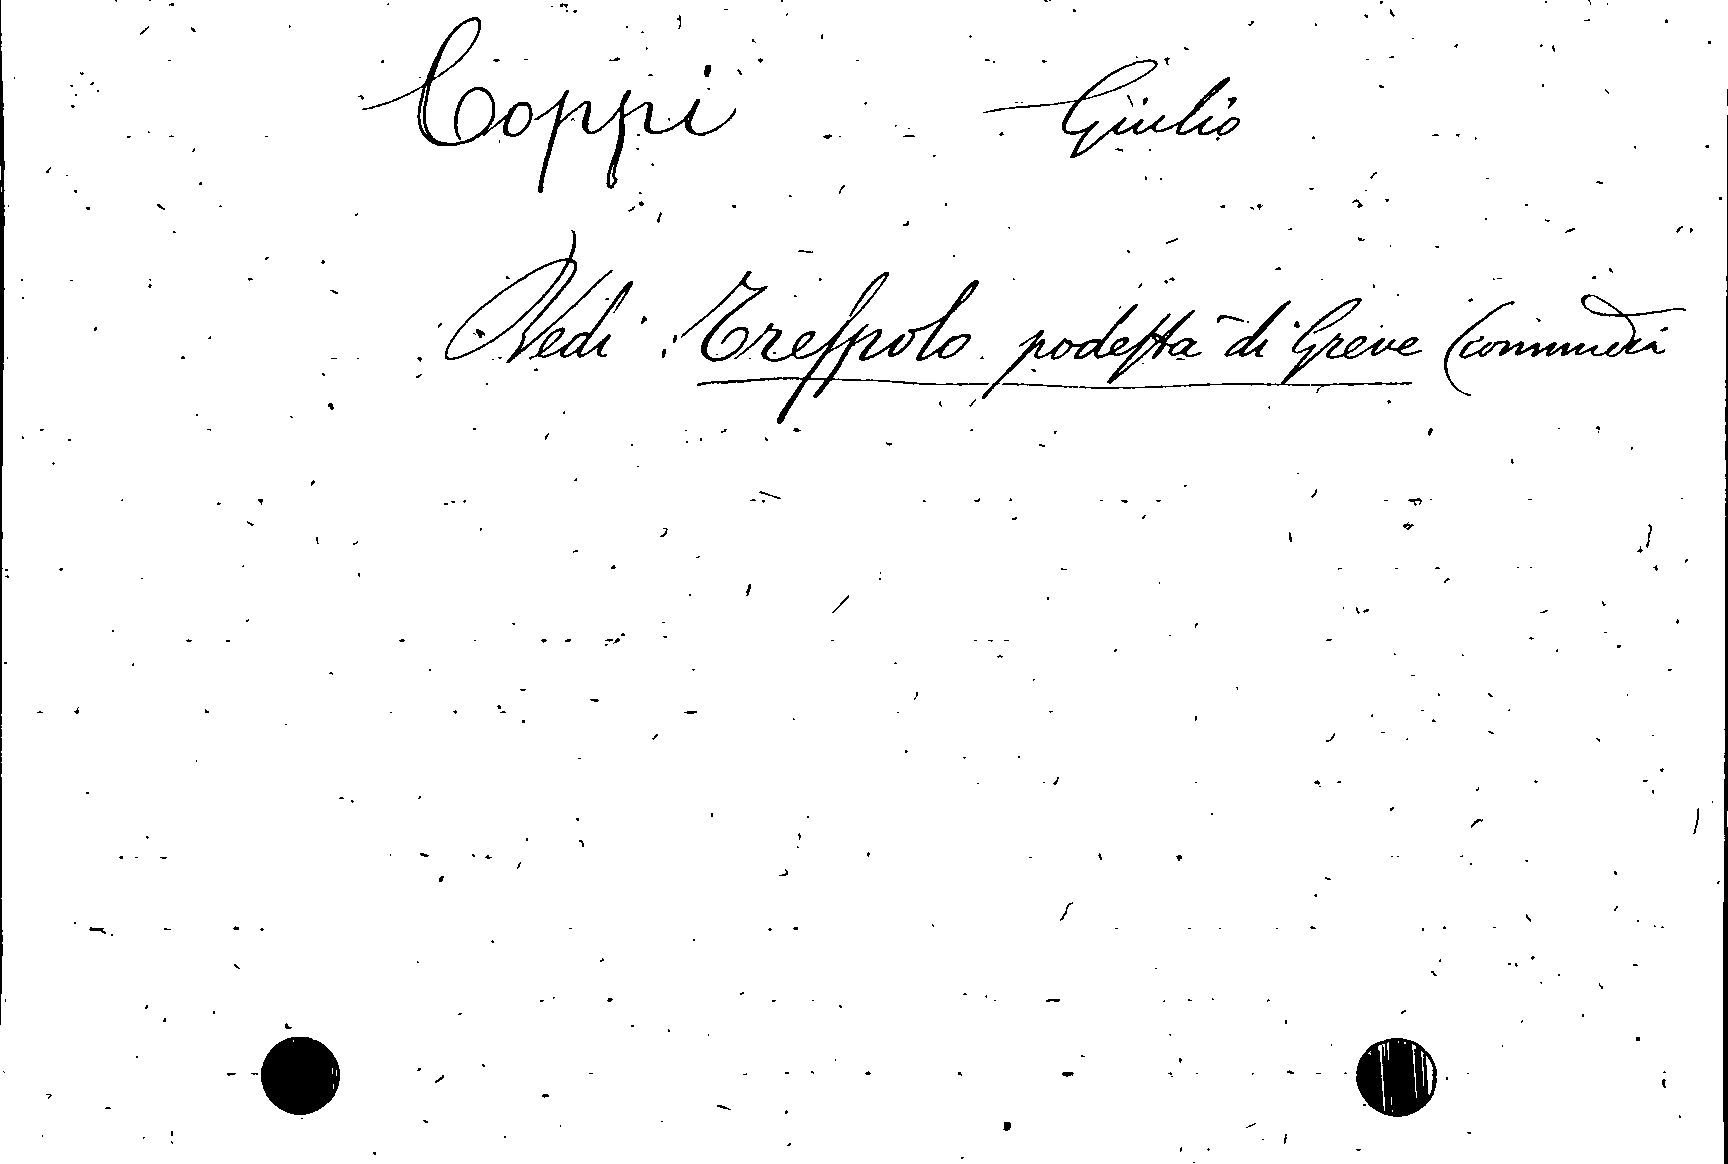 Coppi Giulio
Vedi Trespolo podestà di Greve (commedia